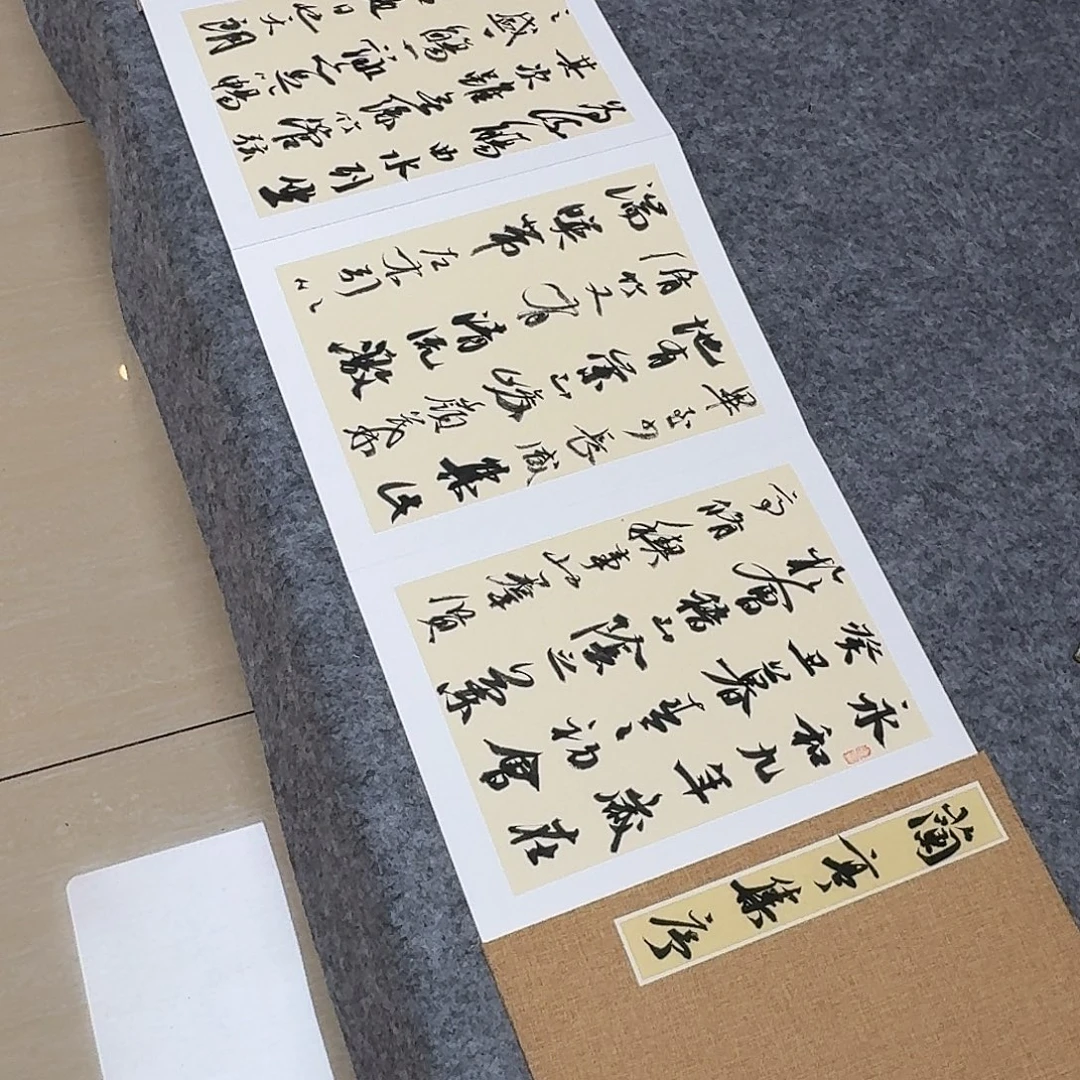 蘭亭集序
永和九年歲在
癸丑暮春之初會
於會稽山陰之蘭
亭修禊事也群賢
畢至少長咸集此
地有崇山峻嶺茂林
脩竹又有清流激
湍映帶左右引以
為流觴曲水列坐
其次雖無絲竹管弦
之盛觴一詠暢
日也天朗